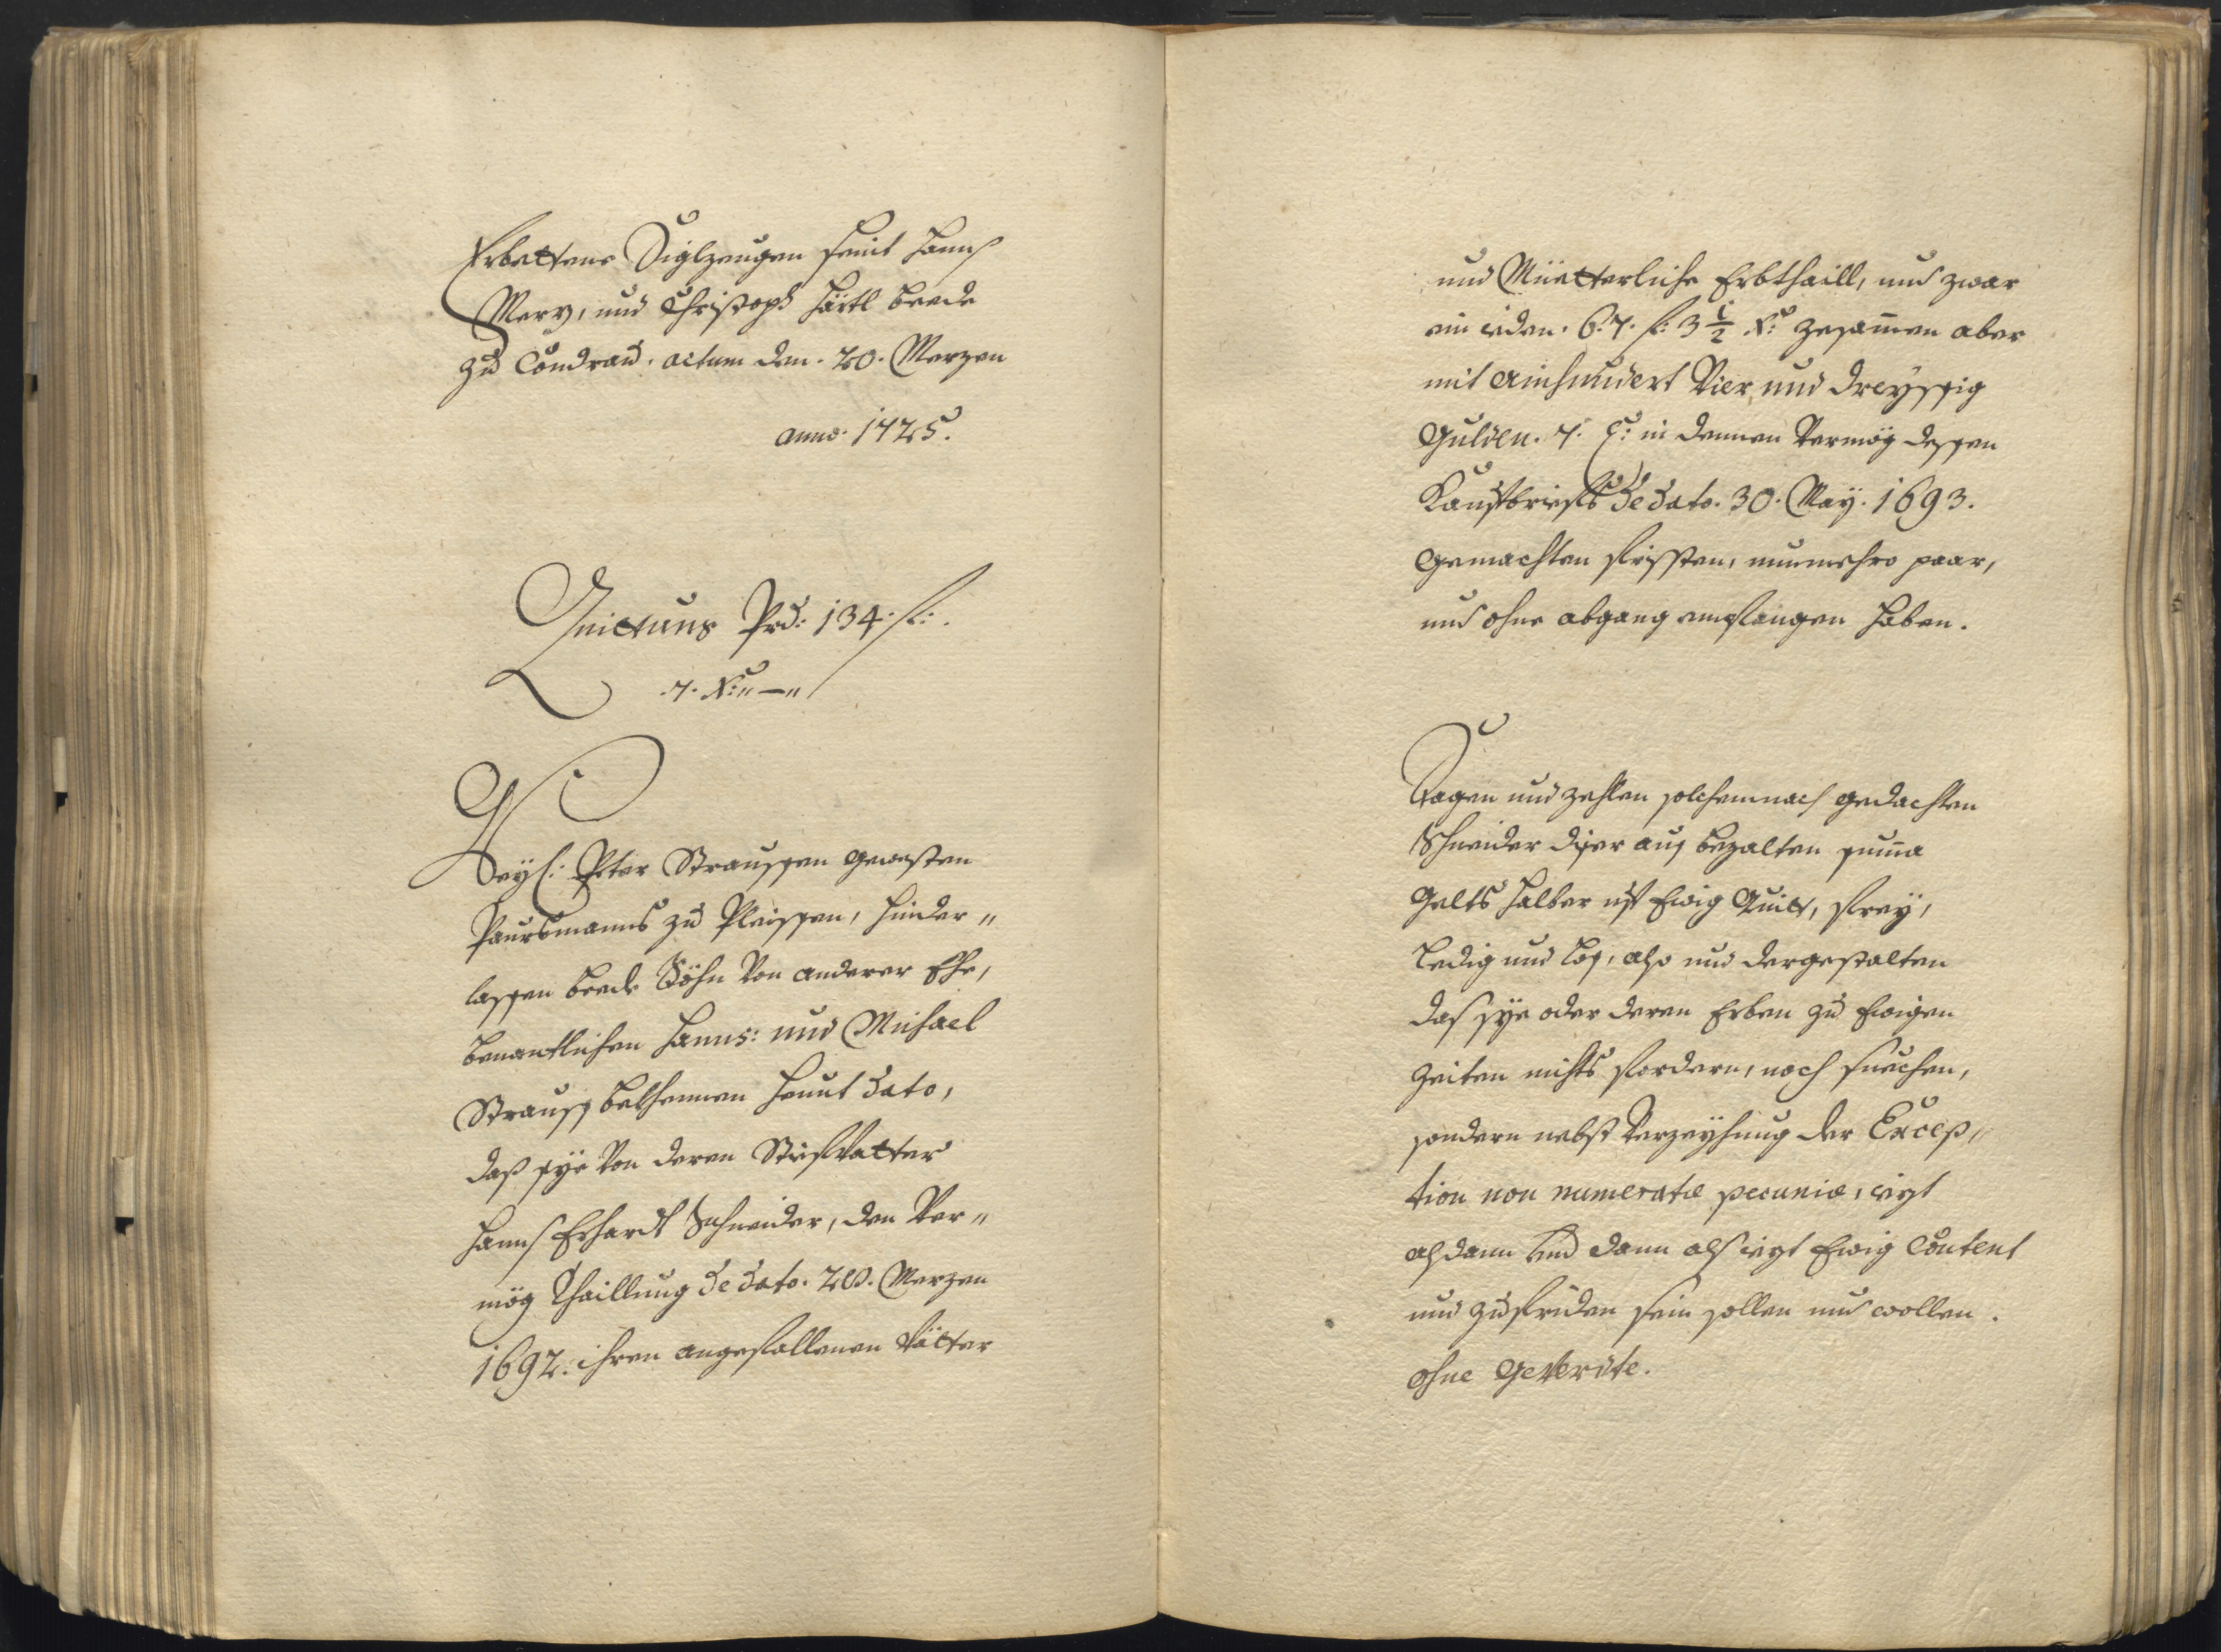 Erbettene Siglzeugen seint Hannß
Merz, und Christoph Härtl beede
zu Condrau. actum den. 20. Merzen
anno: 1725.
Quittung Prd: 134: fl:.
.7. Xr: „—„
Weyl: Peter Straussen gewesten
Paursmanns zu Pleissen, hinder„
lassen beede Söhn Von anderer Ehe,
benantlichen Hanns: und Michael
Strauss bekhennen heunt dato,
daß sye Von deren Stiefvatter
Hannß Erhardt Schneider, den Ver„
mög Thaillung de dato. 28. Merzen
1692. ihren angefallenen Vätter
und Müetterliche Erbthaill, und zwar
ein ieden. 67. fl: 3 1/2 Xr: zesam̄en aber
mit ainhundert Vier und dreyssig
Gulden. 7. Xr: in dennen Vermög dessen
Kaufbriefs de dato. 30. May. 1693.
gemachten fristen, nunmehro paar,
und ohne abgang empfangen haben.
Sagen und zehlen solchemnach gedachten
Schneider diser auß bezalten sum̄a
Gelts halber uf Ewig Quitt, frey,
Ledig und loß, also und dergestalten
das sye oder deren Erben zu Ewigen
Zeiten nichts fordern, noch suechen,
sondern nebst Verzeyhung der Excep„
tion non numeratæ pecuniæ, iezt
alßdann und dann alß iezt Ewig Content
und zufriden sein sollen und wollen.
ohne GeVerdte.